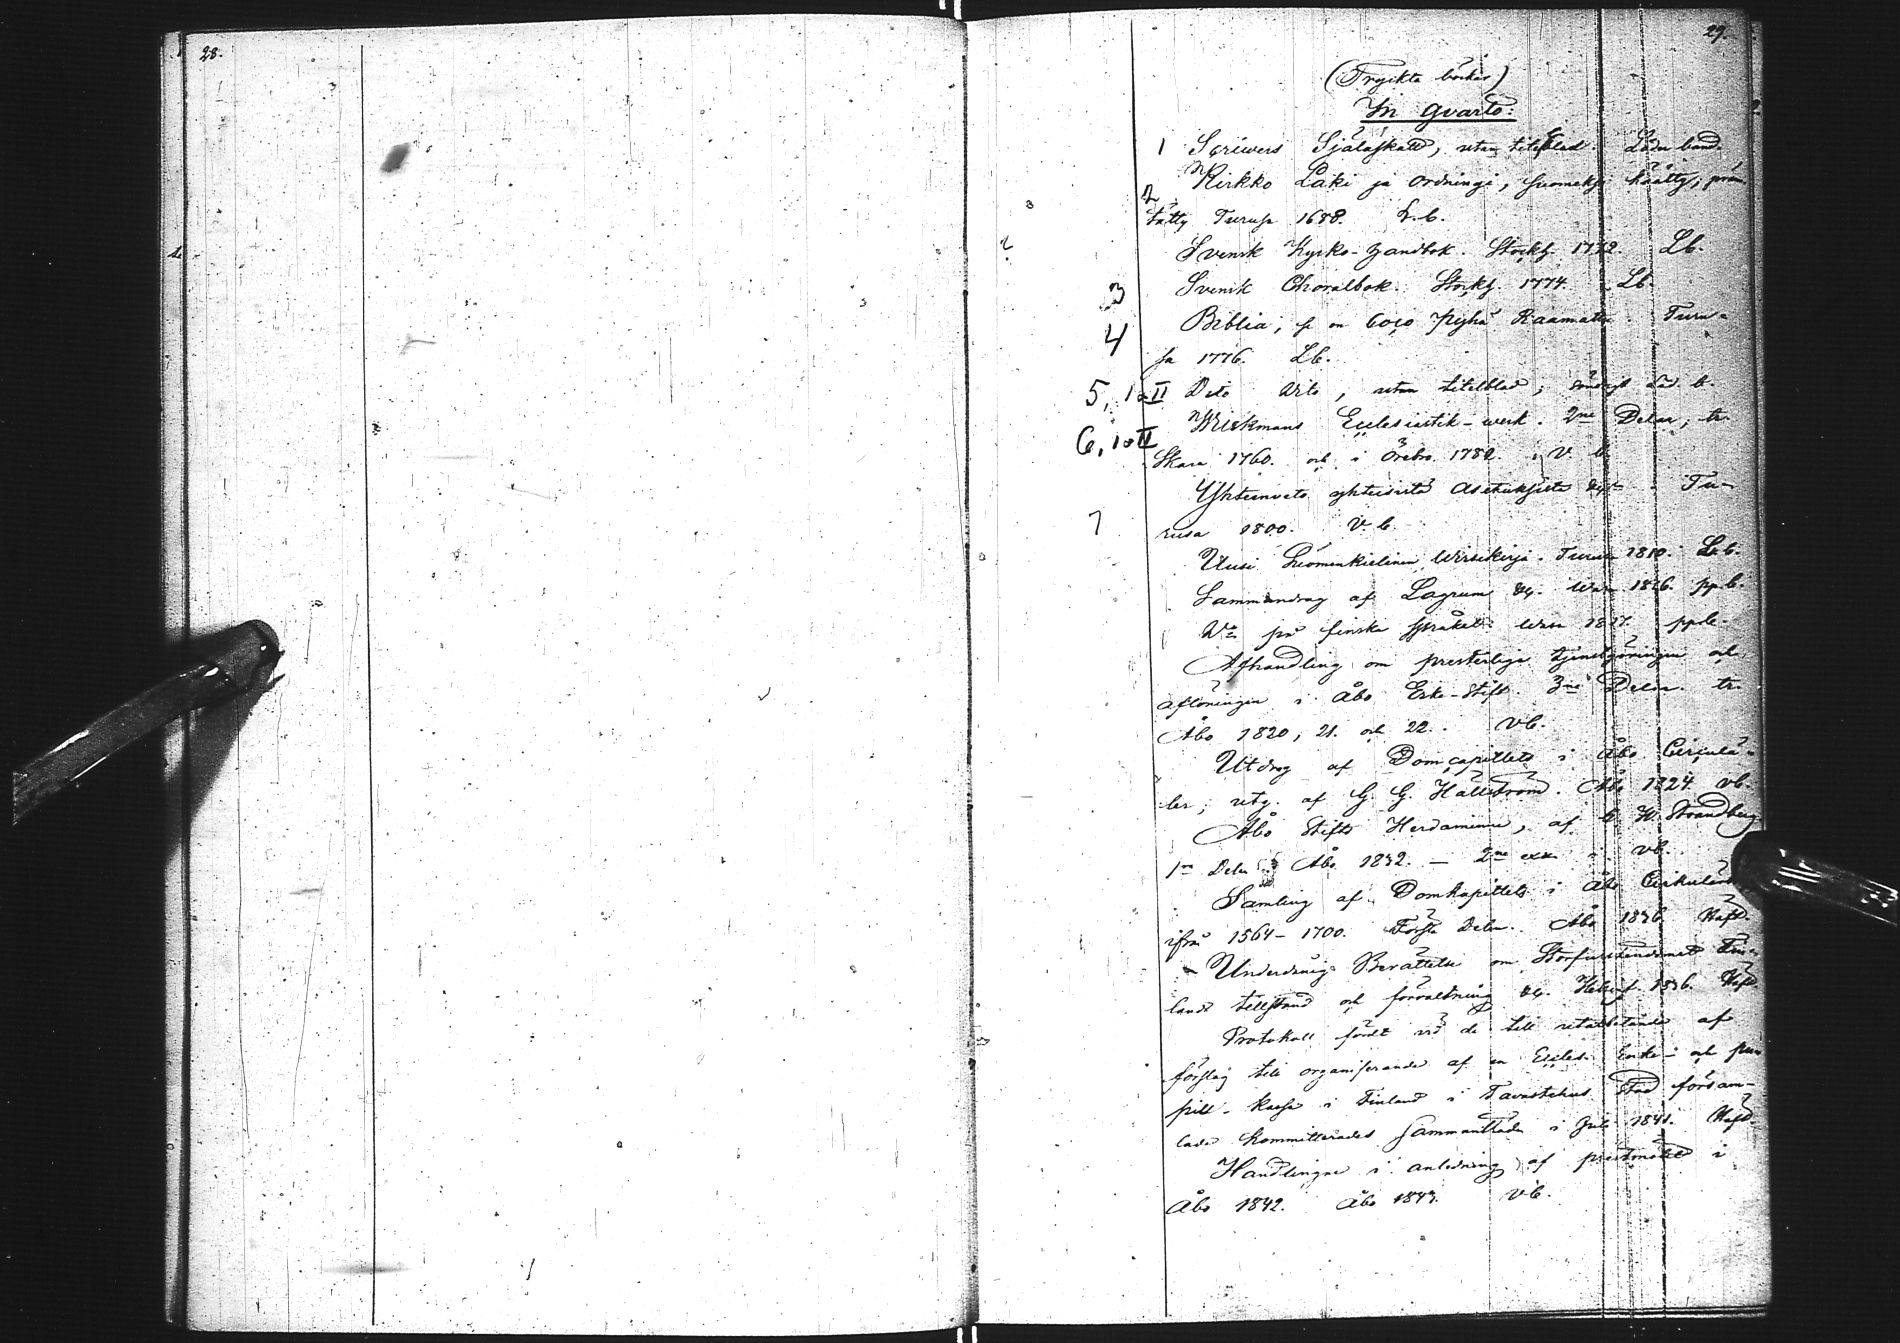 28.
29.
(Tryckta böcker)
In qvarto:
1 Scriwers Själaskatt, utan titelblad. Läder band.
2 Kirkko Laki ja Ordningi, suomeksi käätty, prän-
tätty Turusa 1688. L.b.
Svensk Kyrko-Handbok. Stockh. 1772. Lb.
3 Svensk Choralbok. Stockh. 1774. Lb.
4 Biblia, se on coco Pyhä Raamattu. Turu-
sa 1776. Lb.
5, I o II Dito dito, utan titelblad, läd. b.
6, I o II Wilskmans Ecclesiastik-werk. 2ne Delar, tr.
Skara 1760. och i Örebro 1782. V. b.
7 Yhteenveto yhteisistä Asetuksista &c. Tu-
rusa 1800. V. b.
Uusi Suomenkielinen Wirsikirja. Turusa 1810. L.b.
Sammandrag af Lagrum &c. Wasa 1826. pp.b.
Do på finska språket. Wasa 1827. pp.b.
Afhandling om presterliga tjenstgöringen och
aflöningen i Åbo Erke-Stift. 3ne Delar. tr.
Åbo 1820, 21. och 22. Vb.
Utdrag af Domcapitlets i Åbo Circulä-
rer, utg. af G. G. Hällström. Åbo 1824. vb.
Åbo Stifts Herdaminne, af C. H. Strandberg.
1a Delen Åbo 1832. — 2ne ex. vb.
Samling af Domkapitlets i Åbo Cirkulär
ifrån 1564-1700. Första Delen. Åbo 1836. Häft.
Underdånig Berättelse om Storfurstendömet Fin-
lands tillstånd och förvaltning &c. Helsingf. 1836. Häft.
Protokoll fördt vid de till utarbetande af
förslag till organiserande af en Eccles. Enke- och pu-
pill-kassa i Finland i Tavastehus Stad försam-
lade Kommitterades sammanträde i Juli 1841. Häft.
Handlingar i anledning af prestmötet i
Åbo 1842. Åbo 1843. vb.